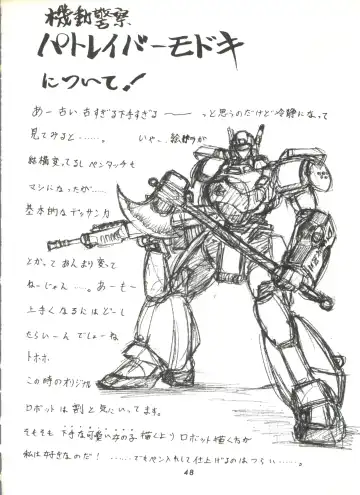 機動警察
パトレイバーモドキ
について!
あー古い古すぎる下手すぎる――っと思うのだけど冷静になって
見てみると……。いや、絵柄が
結構変ってるしペンタッチも
マシになったが……
基本的なデッサン力
とかってあんまり変って
ねーじょん……。あーもー
上手くなるにはどーし
たらいーんでしょーね
トホホ
この時のオリジナル
ロボットは割と気にいってます。
そもそも下手な可愛い女の子描くよりロボット描く方が
私は好きなのだ!……でもペン入れして仕上げるのはつらい……。
48